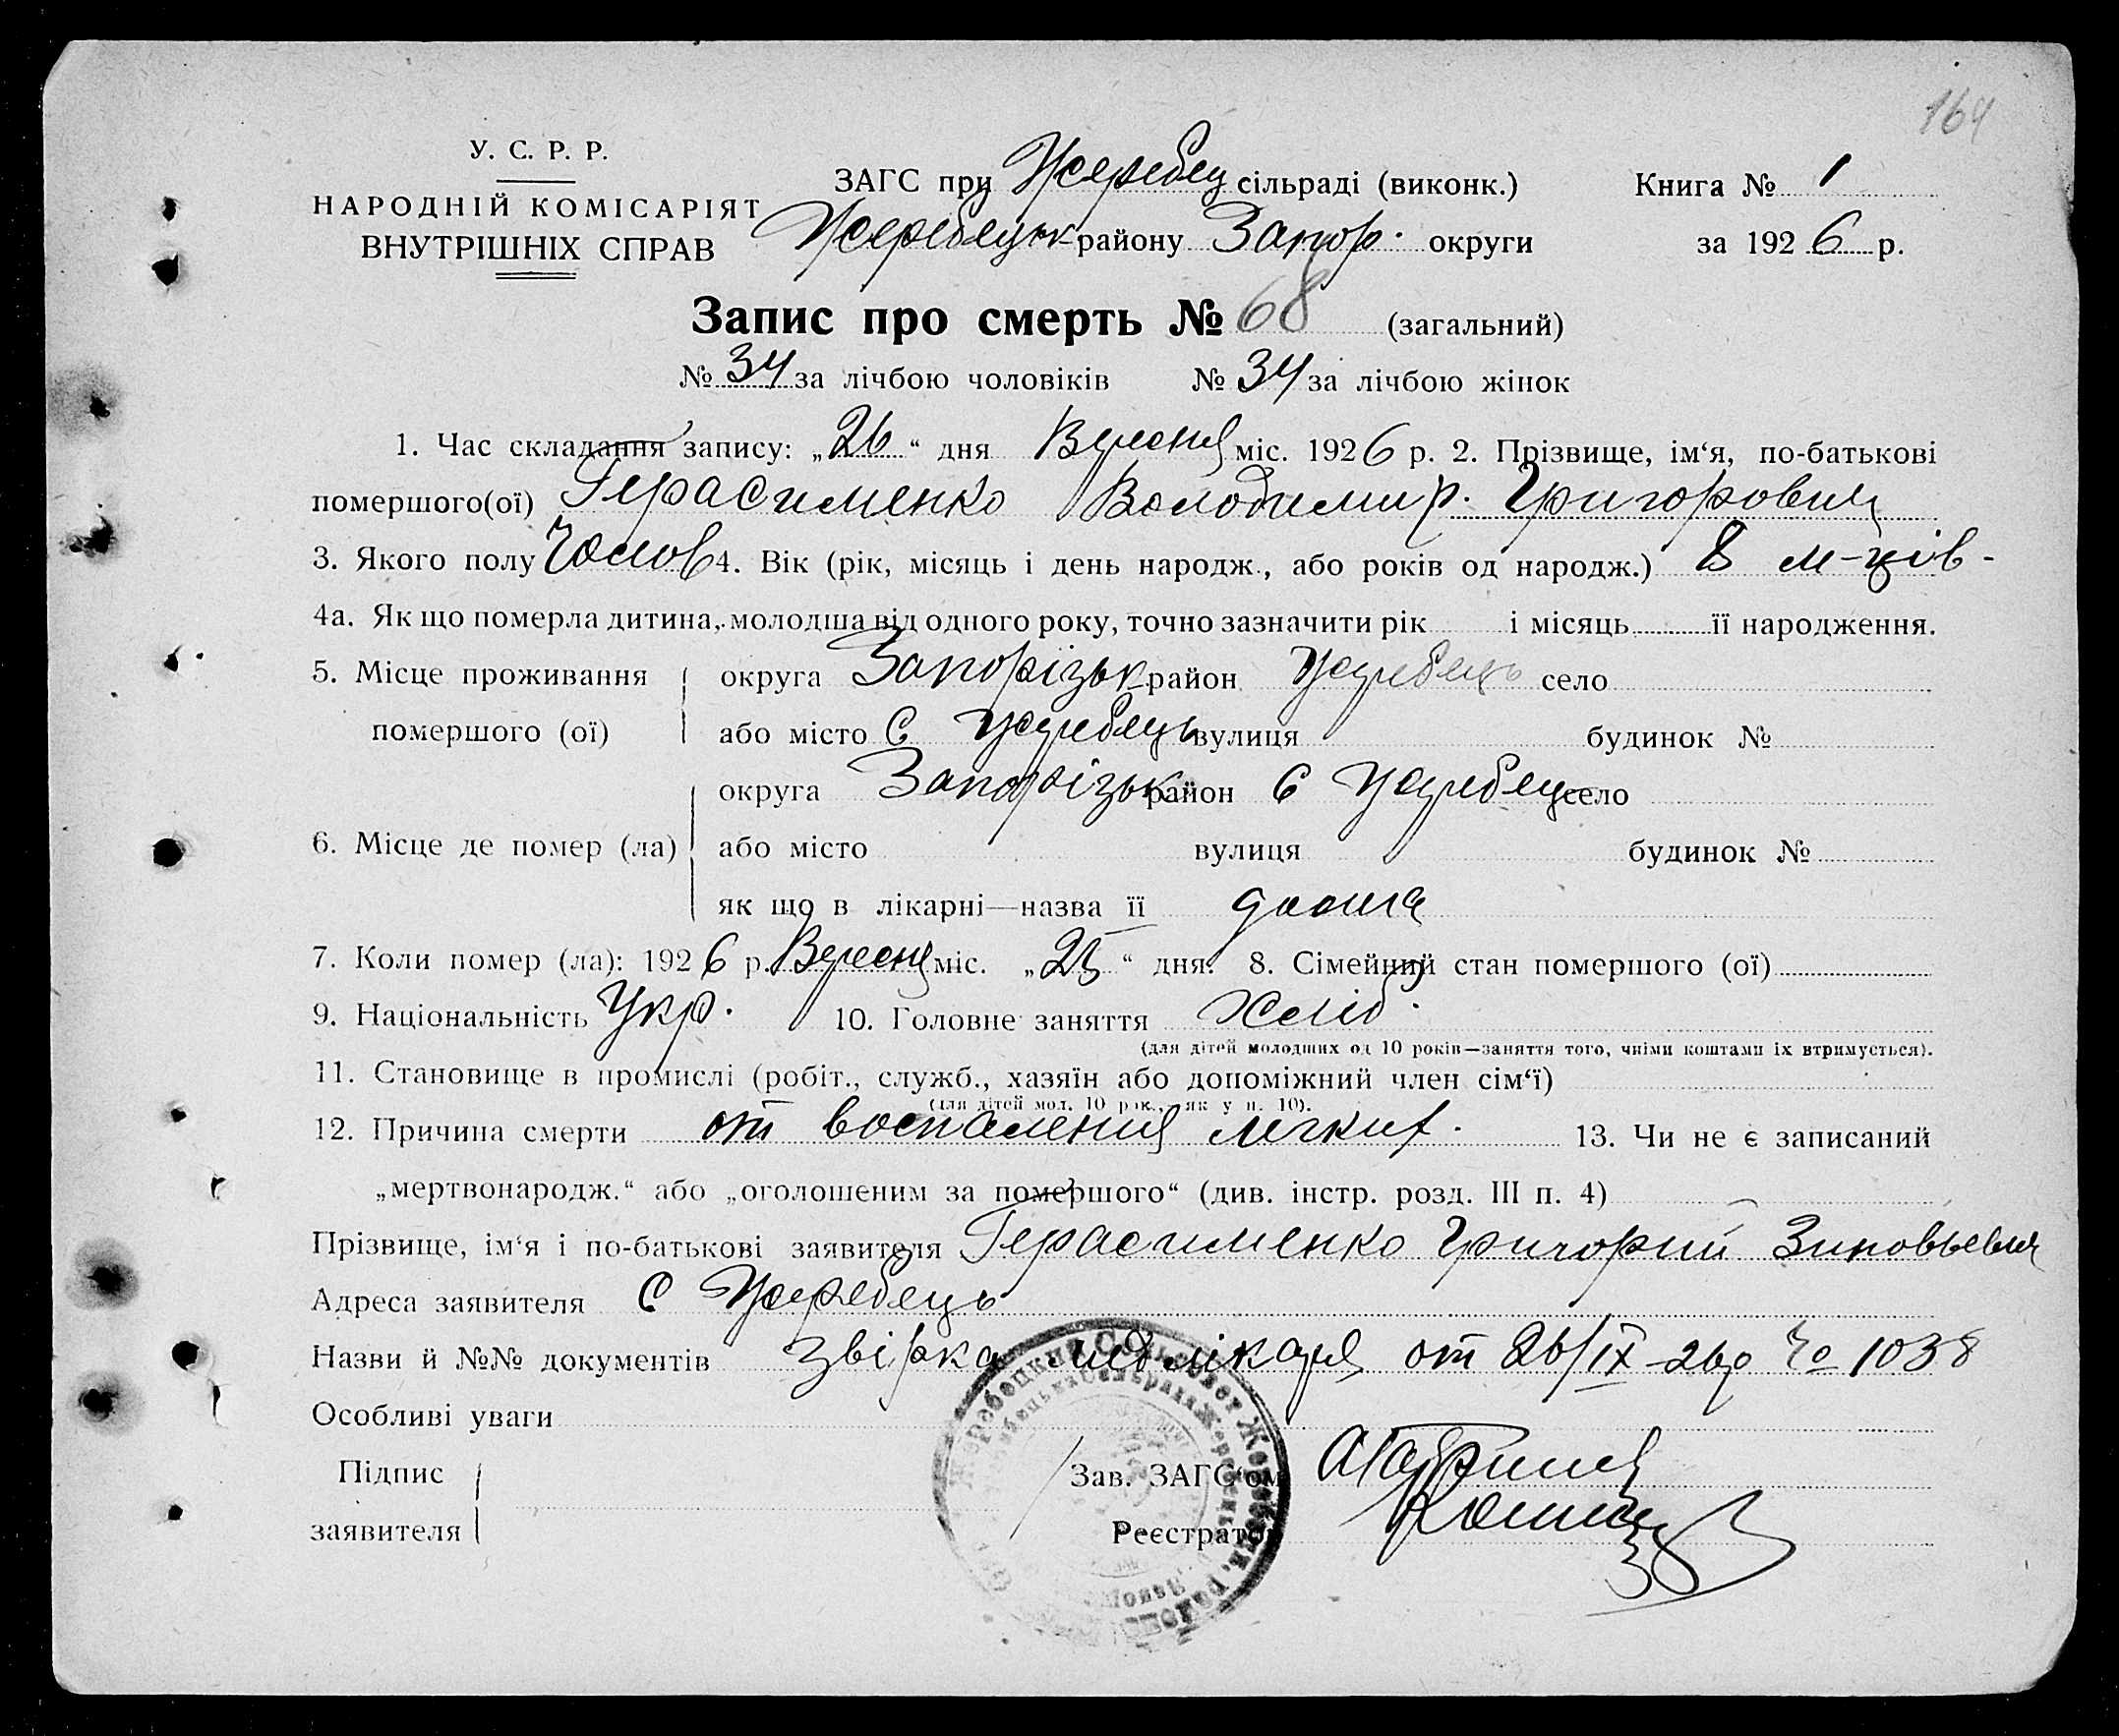 164
У. С. Р. Р.
НАРОДНІЙ КОМІСАРІЯТ
ВНУТРІШНІХ СПРАВ
ЗАГС при Жеребец сільраді (виконк.)
Жеребецьк району Запор. округи
Книга № 1
за 1926 р.
Запис про смерть № 68 (загальний)
№ 34 за лічбою чоловіків № 34 за лічбою жінок
1. Час складання запису: „26“ дня Вересня міс. 1926 р. 2. Прізвище, ім‘я, по-батькові
помершого(ої) Герасименко Володимир. Григорович
3. Якого полу Чолов 4. Вік (рік, місяць і день народж., або років од народж.) 8 м-ців-
4а. Як що померла дитина, молодша від одного року, точно зазначити рік і місяць її народження.
5. Місце проживання помершого (ої)
округа Запорізьк район Жеребець село
або місто С Жеребець вулиця будинок №
6. Місце де помер (ла)
округа Запорізьк район С Жеребец село
або місто вулиця будинок №
як що в лікарні—назва її дома
7. Коли помер (ла): 1926 р. Вересня міс. „25“ дня. 8. Сімейний стан помершого (ої)
9. Національність Укр. 10. Головне заняття Хліб.
(для дітей молодших од 10 років—заняття того, чиїми коштами їх втримується).
11. Становище в промислі (робіт., служб., хазяїн або допоміжний член сім‘ї)
(для дітей мол. 10 рок., як у п. 10).
12. Причина смерти от воспаления легких. 13. Чи не є записаний
„мертвонародж.“ або „оголошеним за помершого“ (див. інстр. розд. III п. 4)
Прізвище, ім‘я і по-батькові заявителя Герасименко Григорий Зиновьевич
Адреса заявителя С Жеребець
Назви й №№ документів лікаря от 26/IX-26р № 1038
Особливі уваги
Підпис заявителя
Зав. ЗАГС‘ом
Реєстратор